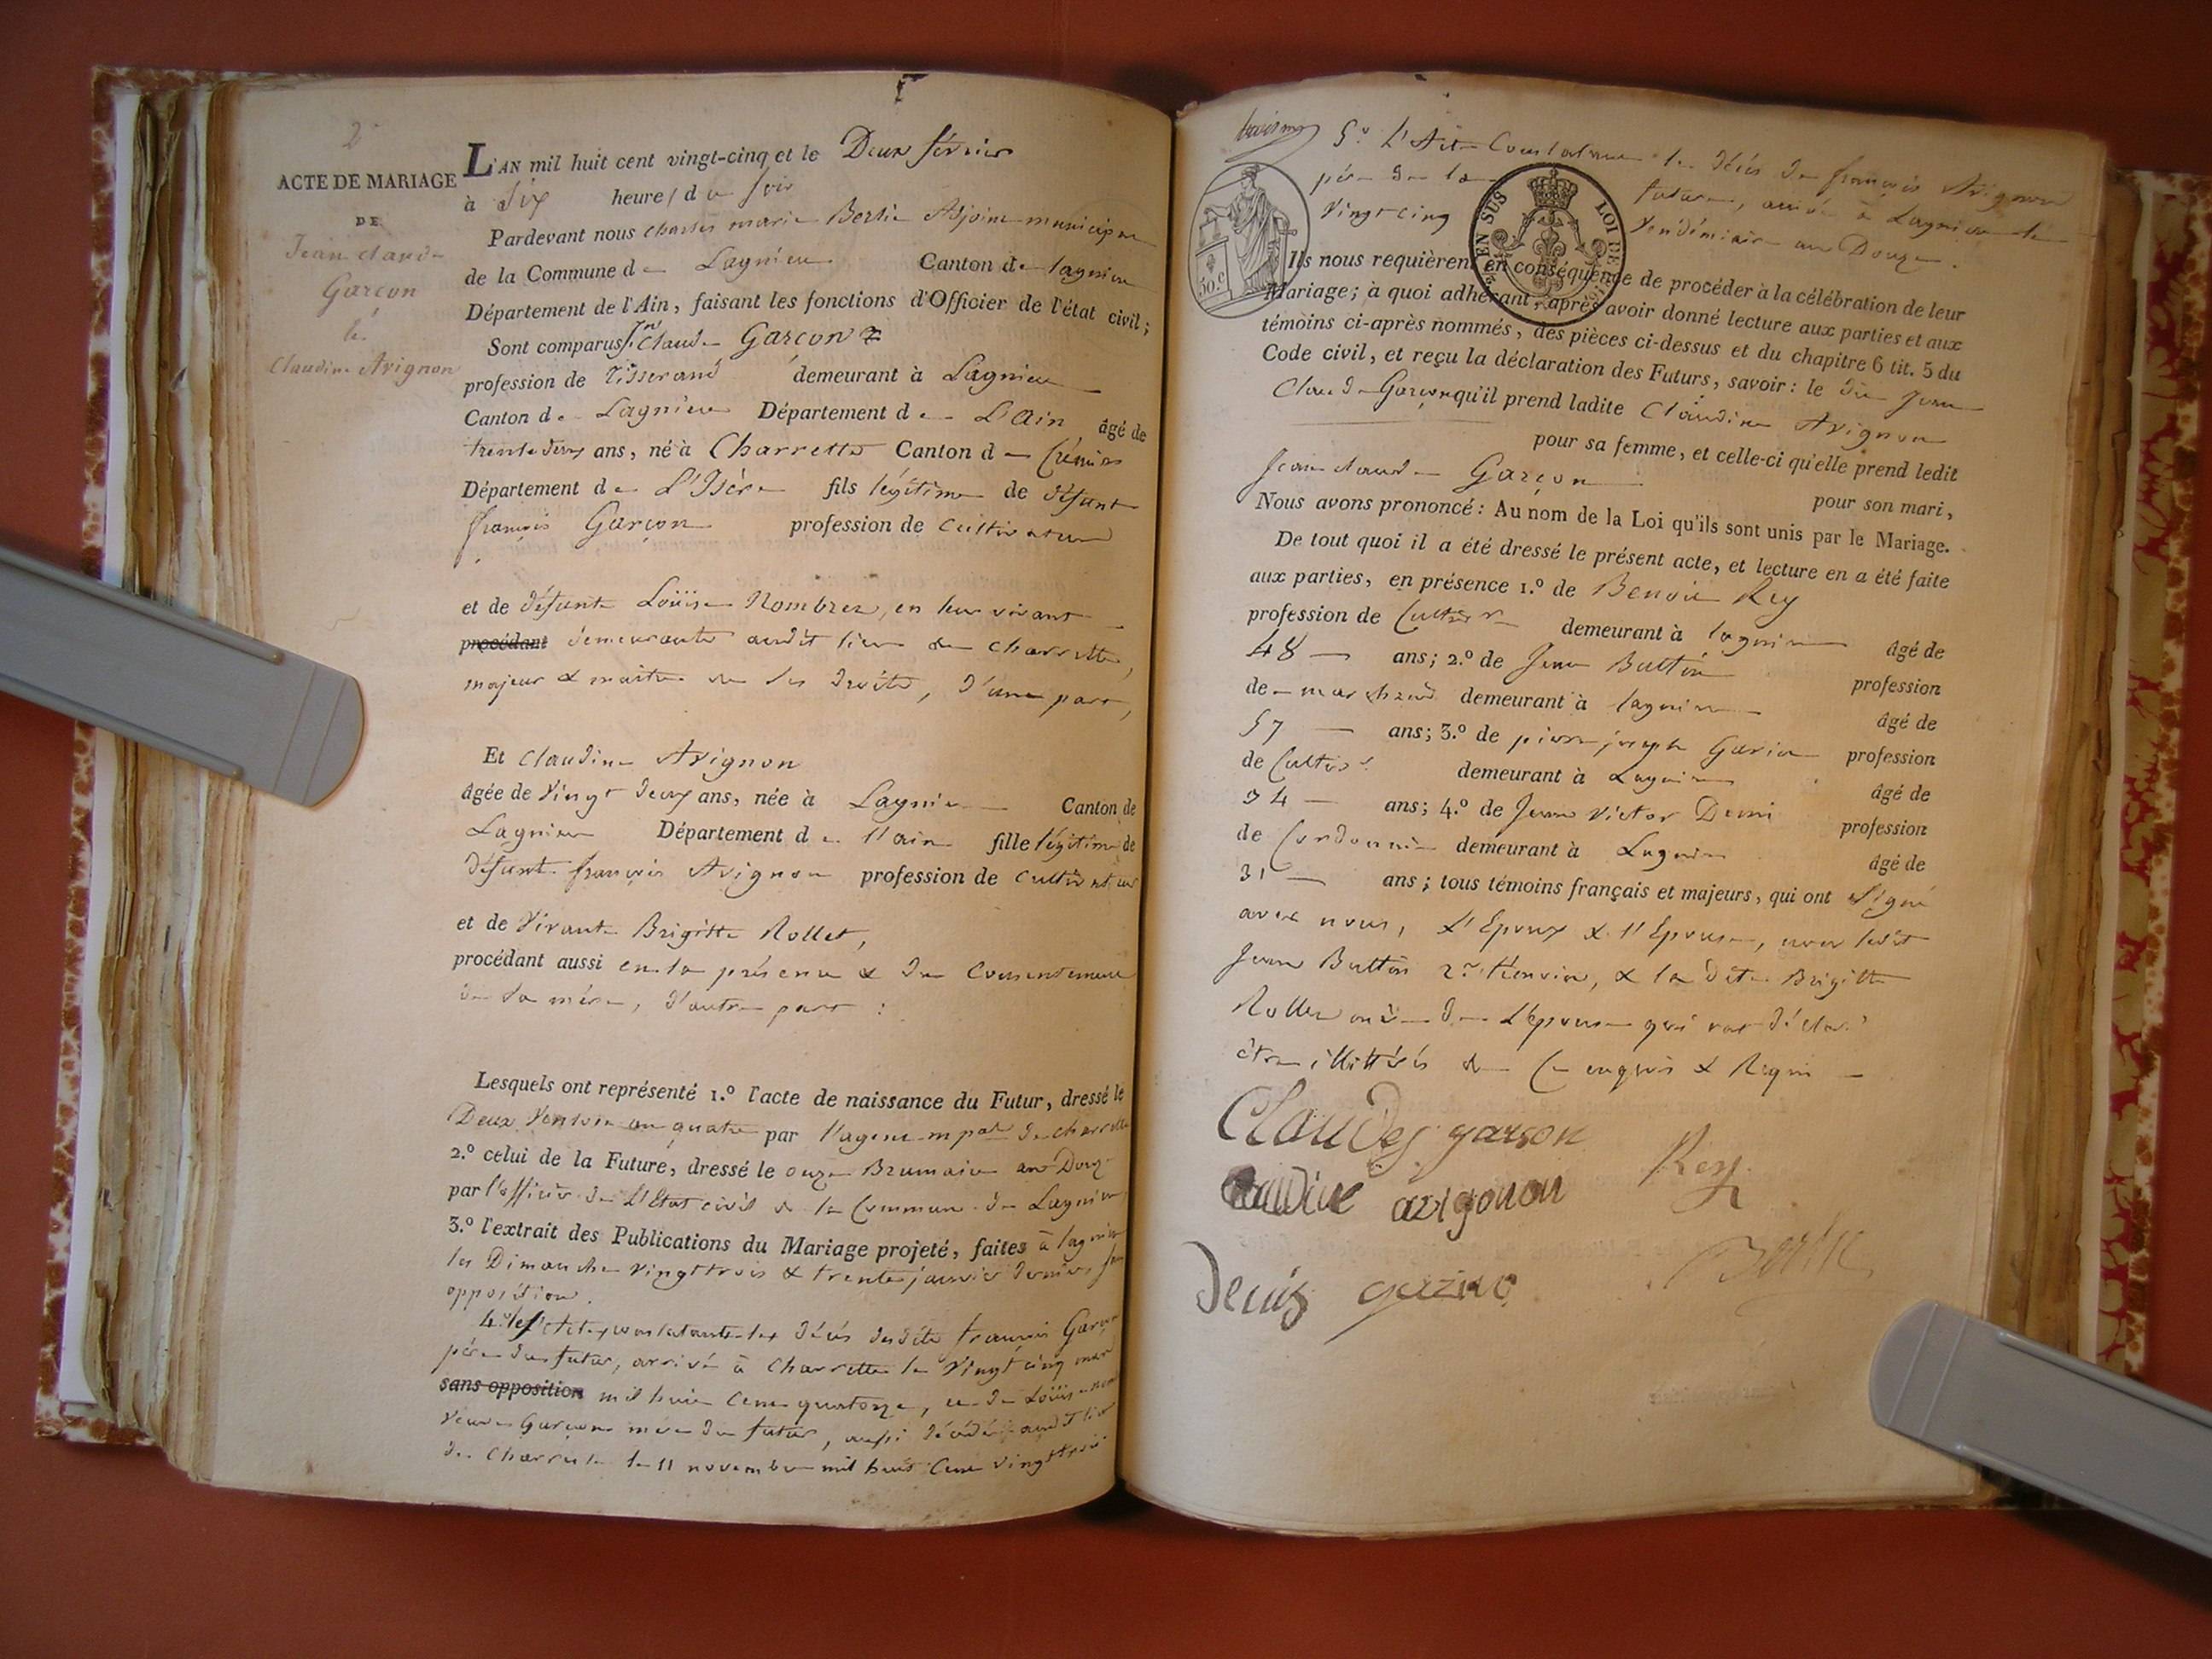 2
ACTE DE MARIAGE
DE
Jean claude
Garçon
&
Claudine Avignon
L'AN mil huit cent vingt-cinq et le Deux février
à Six heures du soir
Pardevant nous charles marie Adjoint municipal
de la Commune de Lagnieu Canton de lagnieu
Département de l'Ain, faisant les fonctions d'Officier de l'état civil;
Sont comparus Jn Claude Garçon
profession de Tisserand demeurant à Lagnieu
Canton de Lagnieu Département de L'Ain âgé de
trente deux ans, né à Charrette Canton de Crémieu
Département de L'Isère fils légitime de défunt
françois Garçon profession de Cultivateur
et de défunte Loüise Nombrez, en leur vivant
procédant demeurants audit lieu de charrette,
majeur & maitre de ses droits, d'une part,
Et Claudine Avignon
âgée de Vingt deux ans, née à Lagnieu Canton de
Lagnieu Département de l'ain fille légitime de
défunt françois Avignon profession de Cultivateur
et de Vivante Brigitte Rollet,
procédant aussi en la présence & du Consentement
de sa mère, d'autre part :
Lesquels ont représenté 1.º l'acte de naissance du Futur, dressé le
Deux Ventose an quatre par l'agent mpal de charrette
2.º celui de la Future, dressé le onze Brumaire an Douze
par l'officier de L'Etat civil de la Commune de Lagnieu
3.º l'extrait des Publications du Mariage projeté, faites à lagnieu
les Dimanches vingt trois & trente janvier dernier, sans
opposition.
4.º les Actes constatants les décès dudit françois Garçon
père du futur, arrivé à Charrette le Vingt cinq mars
sans opposition mil huit Cent quatorze, et de Loüise
veuve Garçon mère du futur, aussi décédée audit lieu
de Charrette le 11 novembre mil huit Cent vingt trois
5.º L'Acte Constatant le décès de françois Avignon
père de la future, arrivé à Lagnieu le
Vingt cinq Vendémiaire an Douze.
50.c
EN SUS
LOI DE
Ils nous requièrent en conséquence de procéder à la célébration de leur
Mariage; à quoi adhérant, après avoir donné lecture aux parties et aux
témoins ci-après nommés, des pièces ci-dessus et du chapitre 6 tit. 5 du
Code civil, et reçu la déclaration des Futurs, savoir: le dit Jean
Claude Garçon qu'il prend ladite Claudine Avignon
pour sa femme, et celle-ci qu'elle prend ledit
Jean claude Garçon pour son mari,
Nous avons prononcé: Au nom de la Loi qu'ils sont unis par le Mariage.
De tout quoi il a été dressé le présent acte, et lecture en a été faite
aux parties, en présence 1.º de Benoit Rey
profession de Cultivr demeurant à lagnieu âgé de
48 ans; 2.º de Jean Buttin profession
de marchand demeurant à lagnieu âgé de
57 ans; 3.º de pierre joseph profession
de Cultivr demeurant à Lagnieu âgé de
34 ans; 4.º de Jean Victor profession
de Cordonnier demeurant à Lagnieu âgé de
31 ans; tous témoins français et majeurs, qui ont signé
avec nous, L'Epoux & l'Epouse, non ledit
Jean Buttin 2.e témoin, & la dite Brigitte
Rollet mère de L'épouse qui ont déclaré
être illittérés de Ce enquis & Requis
Claudes garson
Rey
Claudine avignon